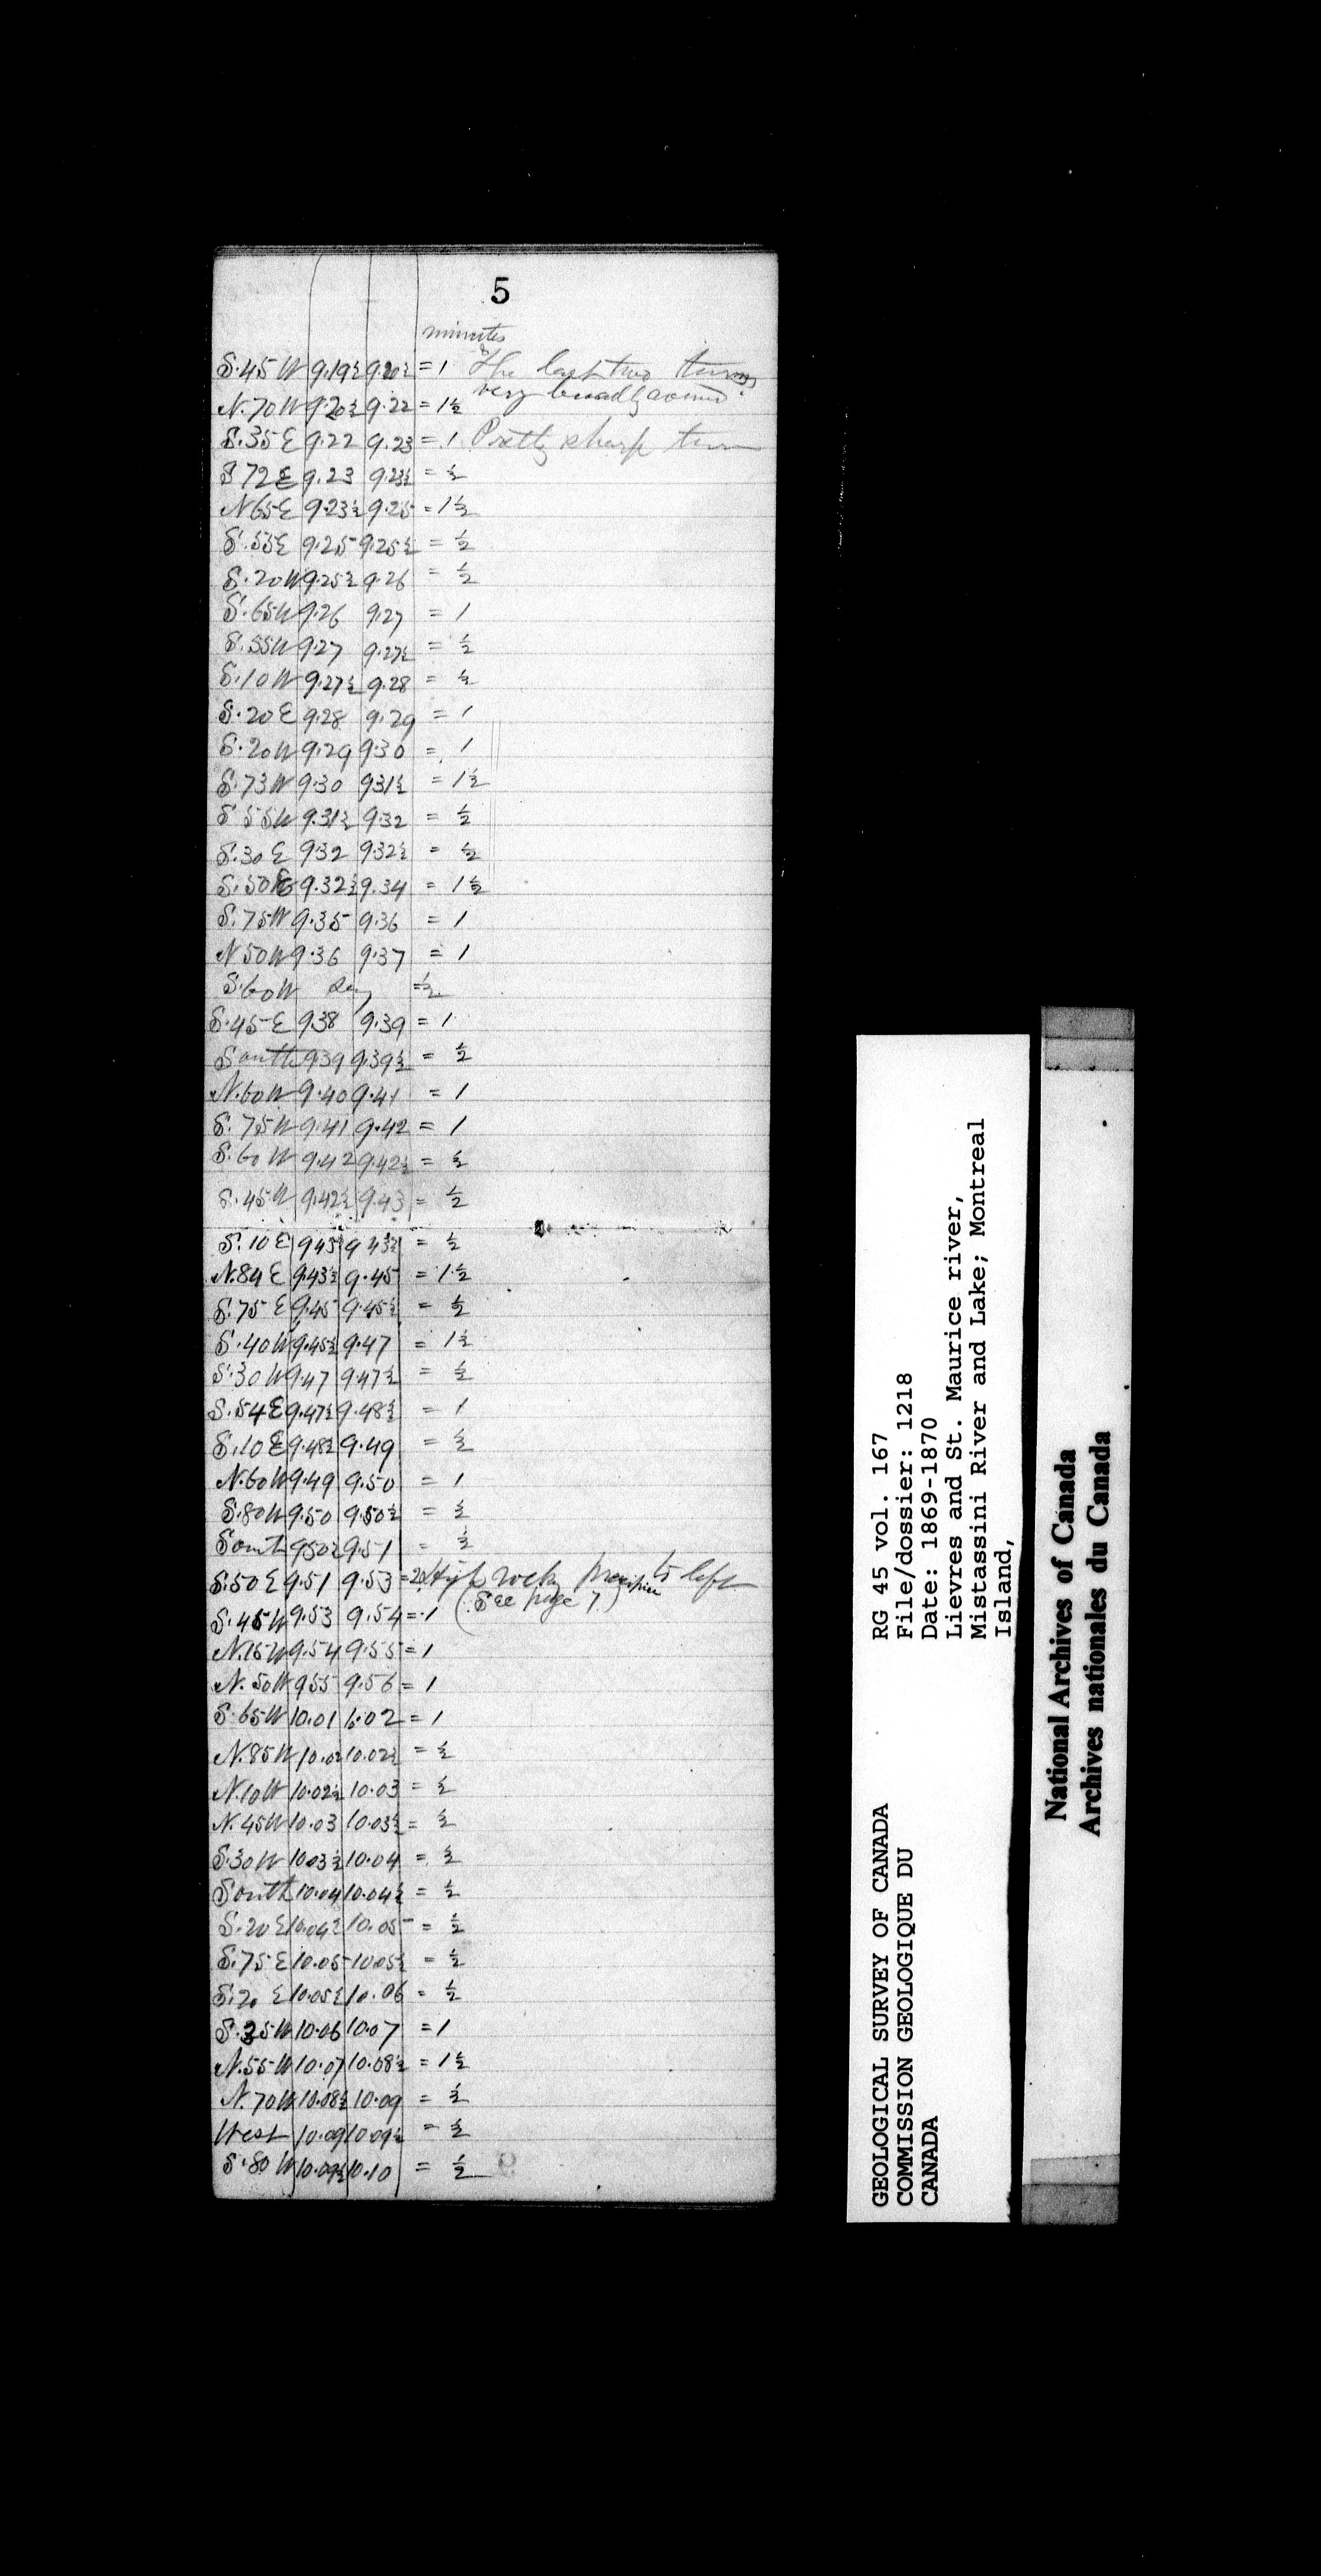 5
minutes
S.45 W 9.19½ 9.20½ = 1 The last two turns
very broadly round.
N.70 W 9.20½ 9.22 = 1½
S.35 E 9.22 9.23 = 1 Pretty sharp turn
S 72 E 9.23 9.23½ = ½
N 65 E 9.23½ 9.25 = 1½
S.55 E 9.25 9.25½ = ½
S.20 W 9.25½ 9.26 = ½
S.65 W 9.26 9.27 = 1
S.55 W 9.27 9.27½ = ½
S.10 W 9.27½ 9.28 = ½
S.20 E 9.28 9.29 = 1
S.20 W 9.29 9.30 = 1
S.73 W 9.30 9.31½ = 1½
S 55 W 9.31½ 9.32 = ½
S.30 E 9.32 9.32½ = ½
S.50 E 9.32½ 9.34 = 1½
S.75 W 9.35 9.36 = 1
N 50 W 9.36 9.37 = 1
S.60 W Say = ½
S.45 E 9.38 9.39 = 1
South 9.39 9.39½ = ½
N.60 W 9.40 9.41 = 1
S.75 W 9.41 9.42 = 1
S.60 W 9.42 9.42½ = ½
S.45 W 9.42½ 9.43 = ½
S.10 E 9 43 9 43½ = ½
N.84 E 9.43½ 9.45 = 1½
S.75 E 9.45 9.45½ = ½
S.40 W 9.45½ 9.47 = 1½
S.30 W 9.47 9.47½ = ½
S.54 E 9.47½ 9.48½ = 1
S.10 E 9.48½ 9.49 = ½
N.60 W 9.49 9.50 = 1
S.80 W 9.50 9.50½ = ½
South 9.50½ 9.51 = ½
S.50 E 9.51 9.53 = 2 High rocky precipice to left
(See page 7)
S.45 W 9.53 9.54 = 1
N.15 W 9.54 9.55 = 1
N.50 W 9.55 9.56 = 1
S.65 W 10.01 10.02 = 1
N.85 W 10.02 10.02½ = ½
N.10 W 10.02½ 10.03 = ½
N.45 W 10.03 10.03½ = ½
S.30 W 10.03½ 10.04 = ½
South 10.04 10.04½ = ½
S.20 E 10.04½ 10.05 = ½
S.75 E 10.05 10.05½ = ½
S.20 E 10.05½ 10.06 = ½
S.35 W 10.06 10.07 = 1
N.55 W 10.07 10.08½ = 1½
N.70 W 10.08½ 10.09 = ½
West 10.09 10.09½ = ½
S.80 W 10.09½ 10.10 = ½
GEOLOGICAL SURVEY OF CANADA
COMMISSION GEOLOGIQUE DU
CANADA
RG 45 vol. 167
File/dossier: 1218
Date: 1869-1870
Lievres and St. Maurice river,
Mistassini River and Lake; Montreal
Island,
National Archives of Canada
Archives nationales du Canada